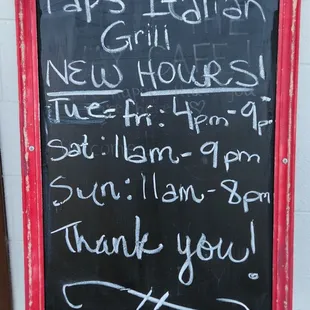 Paps Italian
Grill
NEW HOURS!
Tue-Fri: 4pm-9p
Sat: 11am-9pm
Sun: 11am-8pm
Thank you!